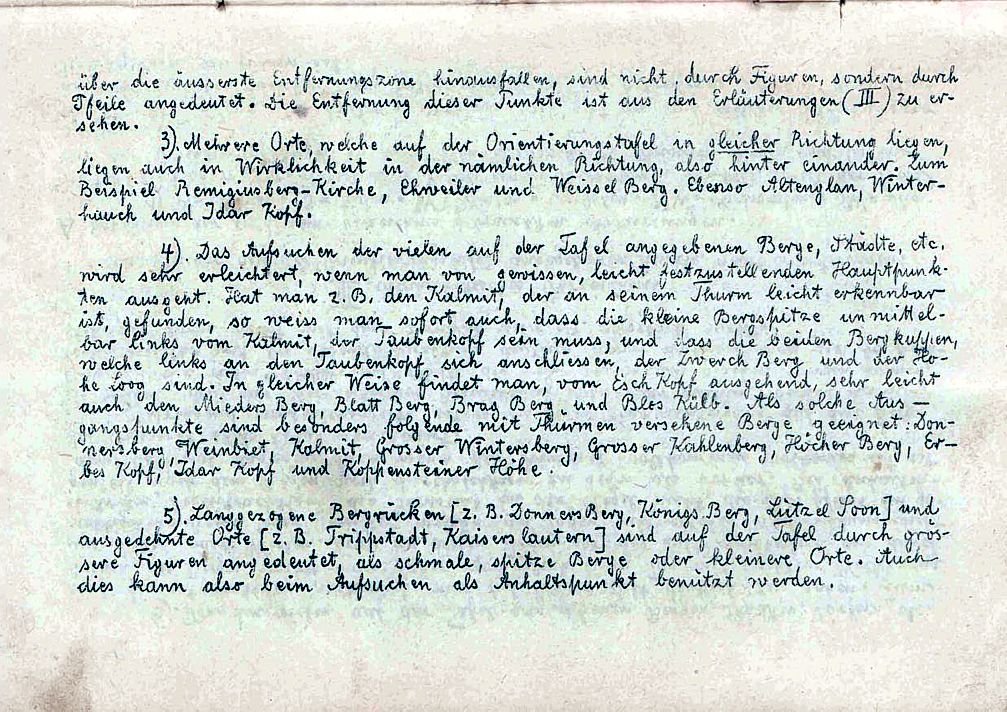 über die äusserste Entfernungszone hinausfallen, sind nicht durch Figuren, sondern durch
Pfeile angedeutet. Die Entfernung dieser Punkte ist aus den Erläuterungen (III) zu er-
sehen.
3). Mehrere Orte, welche auf der Orientierungstafel in gleicher Richtung liegen,
liegen auch in Wirklichkeit in der nämlichen Richtung, also hinter einander. Zum
Beispiel Remigiusberg-Kirche, Ehweiler und Weissel Berg. Ebenso Altenglan, Winter-
hauch und Idar Kopf.
4). Das Aufsuchen der vielen auf der Tafel angegebenen Berge, Städte, etc.
wird sehr erleichtert, wenn man von gewissen, leicht festzustellenden Hauptpunk-
ten ausgeht. Hat man z. B. den Kalmit, der an seinem Thurm leicht erkennbar
ist, gefunden, so weiss man sofort auch, dass die kleine Bergspitze unmittel-
bar links vom Kalmit, der Taubenkopf sein muss, und dass die beiden Bergkuppen,
welche links an den Taubenkopf sich anschliessen, der Zwerch Berg und der Ho-
he Loog sind. In gleicher Weise findet man, vom Esch Kopf ausgehend, sehr leicht
auch den Mieders Berg, Blatt Berg, Brag Berg und Blos Külb. Als solche Aus-
gangspunkte sind besonders folgende mit Thürmen versehene Berge geeignet: Don-
nersberg Weinbiet, Kalmit, Grosser Wintersberg, Grosser Kahlenberg, Höcher Berg, Er-
bes Kopf, Idar Kopf und Koppensteiner Höhe.
5). Langgezogene Bergrücken [z. B. Donners Berg, Königs Berg, Lützel Soon] und
ausgedehnte Orte [z. B. Trippstadt, Kaiserslautern] sind auf der Tafel durch grös-
sere Figuren angedeutet, als schmale, spitze Berge oder kleinere Orte. Auch
dies kann also beim Aufsuchen als Anhaltspunkt benützt werden.